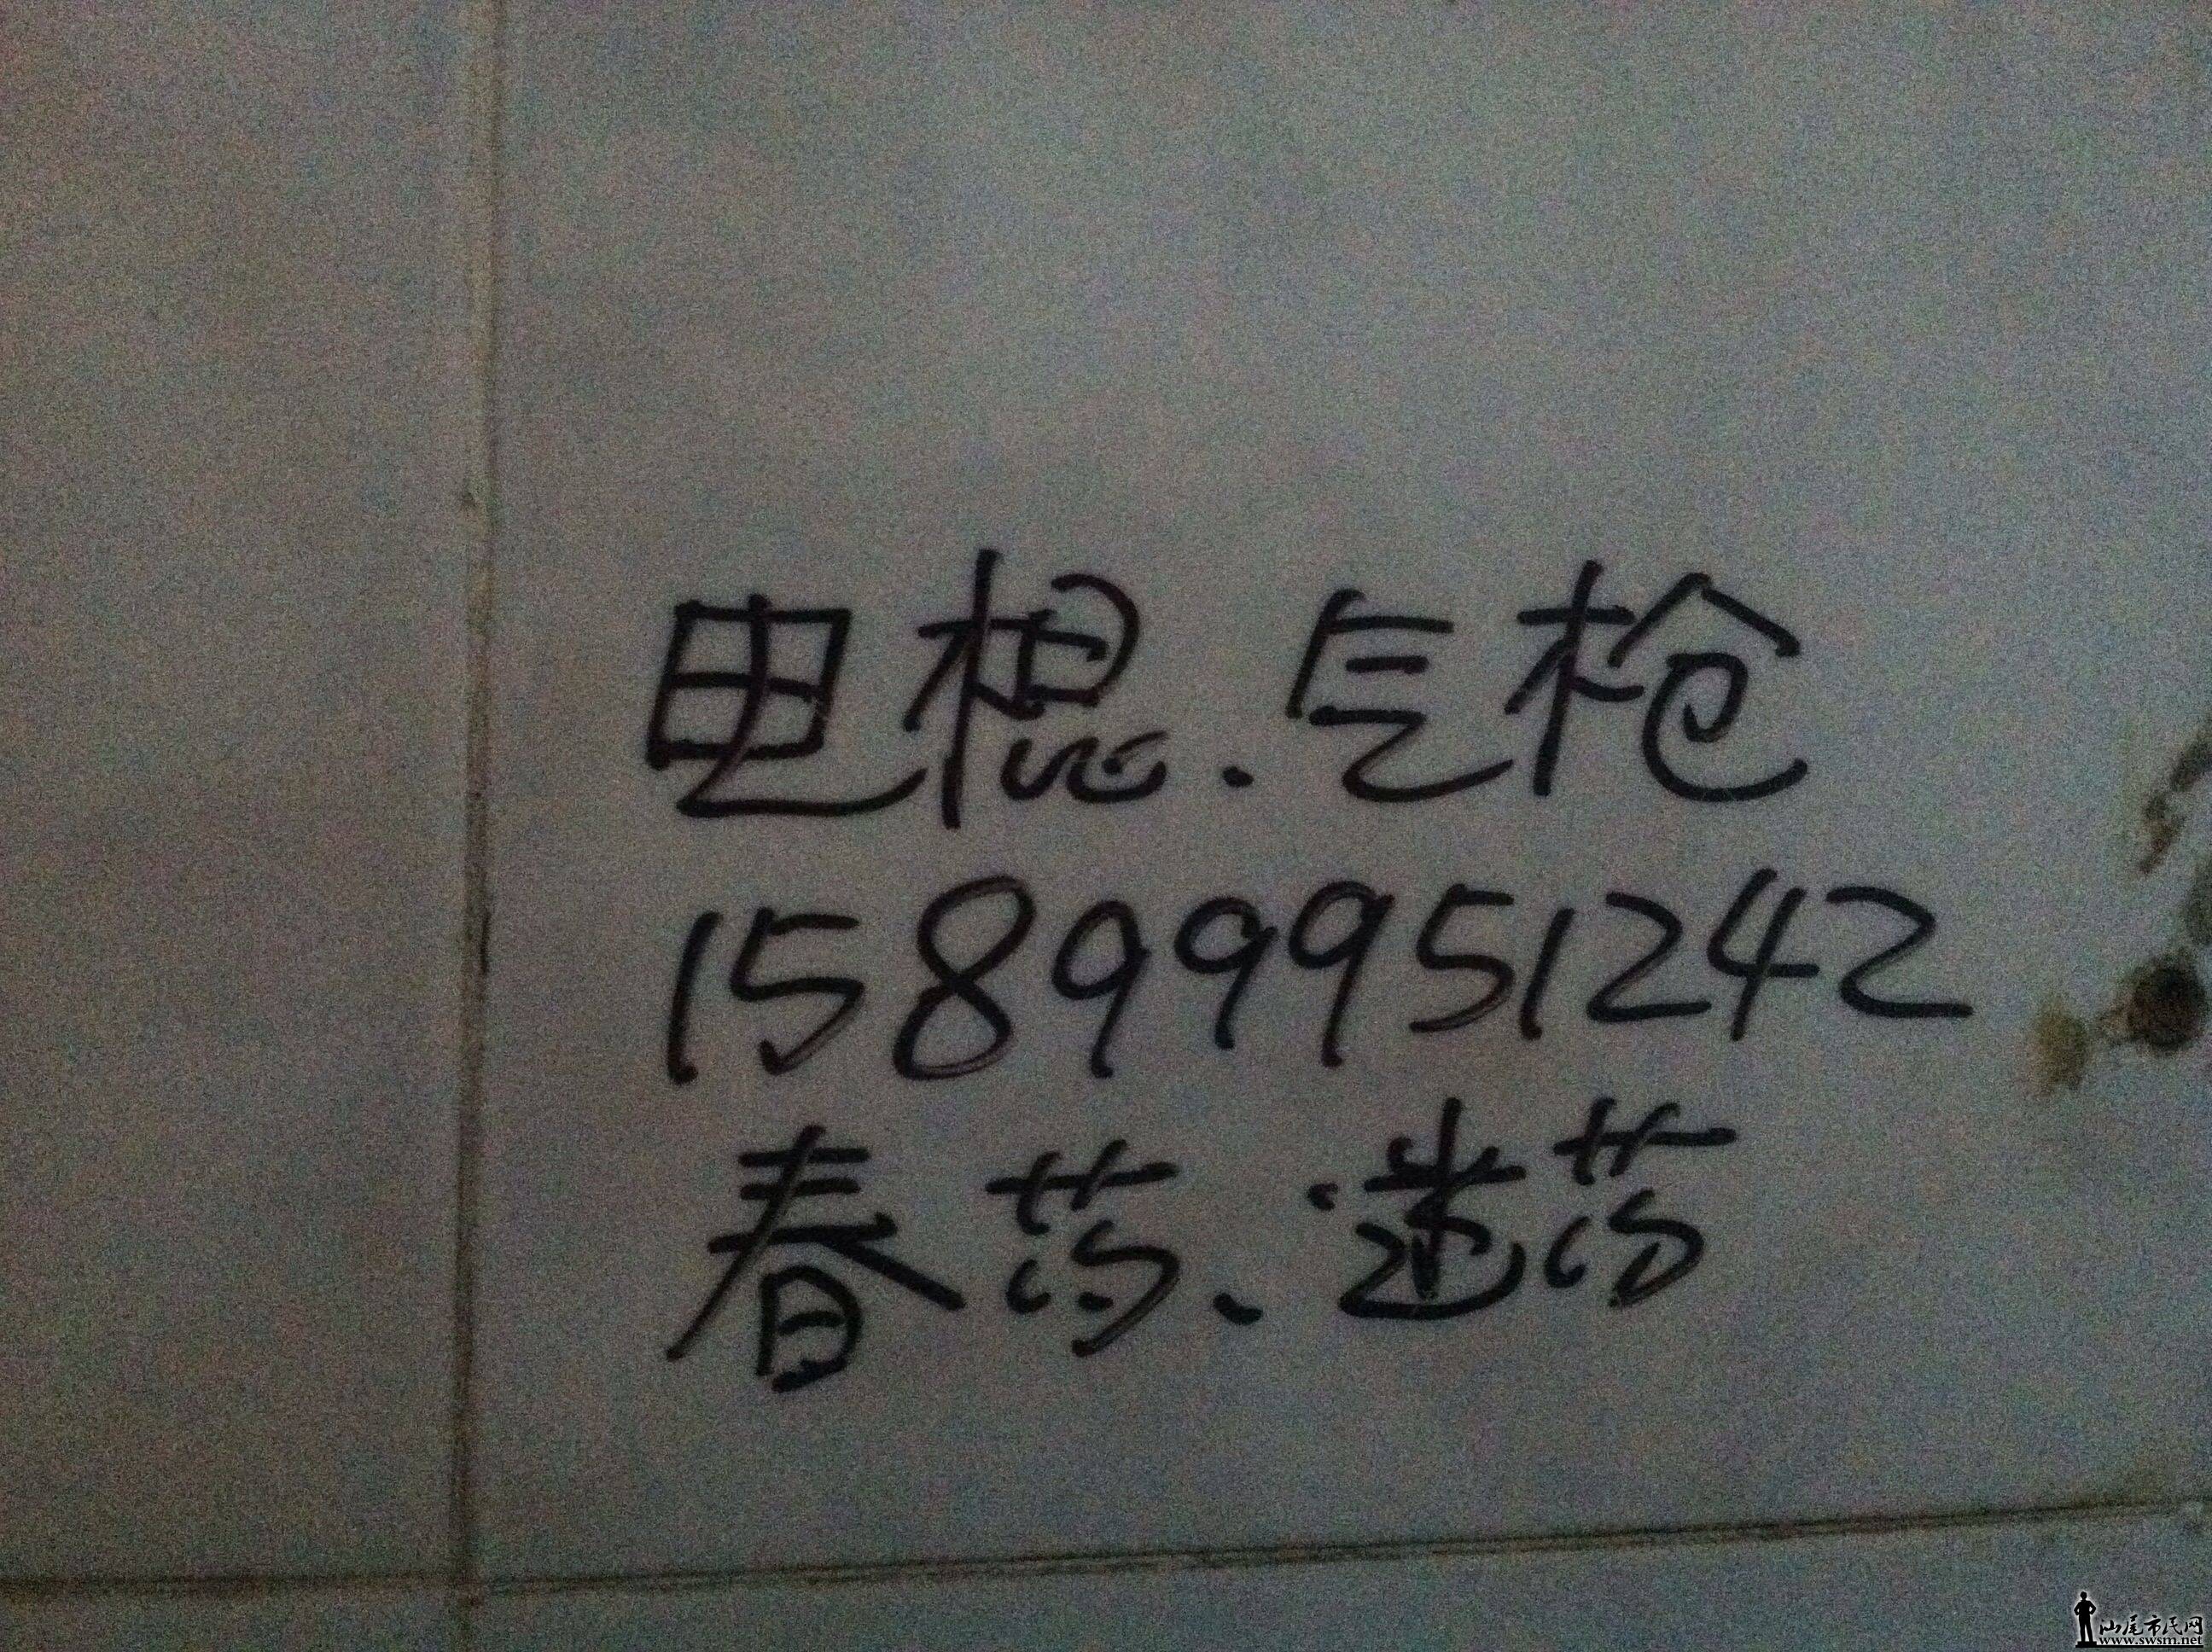 电棍.气枪
15899951242
春药、迷药
汕尾市民网
www.swsm.net